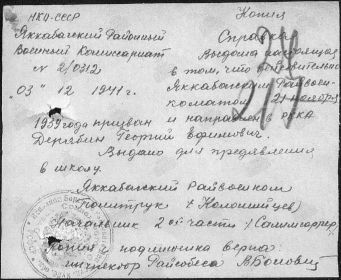 Копия
НКО-СССР
Яккабагский Районный
Военный Комиссариат
N 2/0312
"03" 12 1941 г.
Справка
Выдана настоящая
в том, что действительно
Яккабагским Райвоен-
коматом 21 ноября
1939 года призван и направлен в РККА
Дерябин Георгий Ефимович.
Выдано для предявления
в школу.
Яккабагский Райвоенком
Политрук /Коломийцев/
Начальник 2ой части
Копия с подлинником верна
инспектор Райсобеса